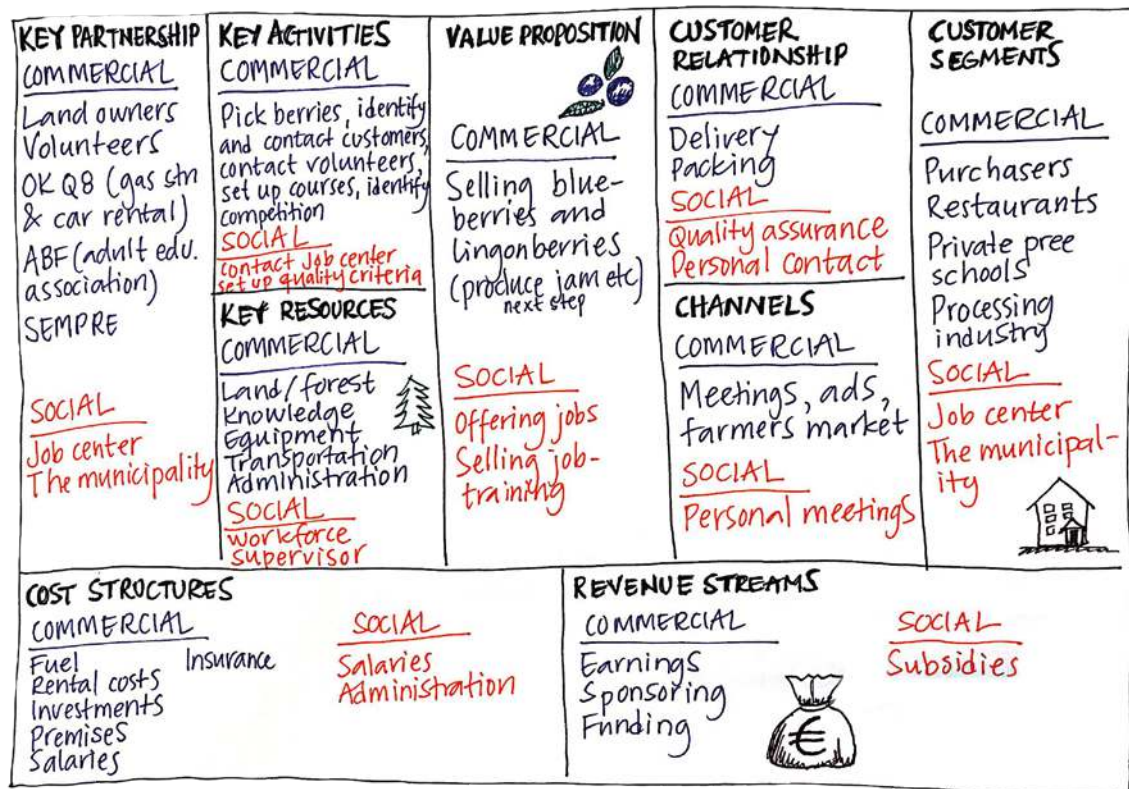 KEY PARTNERSHIP
COMMERCIAL
Land owners
Volunteers
OK Q8 (gas stn
& car rental)
ABF (adult edu.
association)
SEMPRE
SOCIAL
Job center
The municipality
KEY ACTIVITIES
COMMERCIAL
Pick berries, identify
and contact customers,
contact volunteers,
set up courses, identify
competition
SOCIAL
contact Job center
set up quality criteria
KEY RESOURCES
COMMERCIAL
Land/forest
Knowledge
Equipment
Transportation
Administration
SOCIAL
Workforce
Supervisor
VALUE PROPOSITION
COMMERCIAL
Selling blue-
berries and
Lingonberries
(produce jam etc)
next step
SOCIAL
Offering jobs
Selling job-
training
CUSTOMER
RELATIONSHIP
COMMERCIAL
Delivery
Packing
SOCIAL
Quality assurance
Personal Contact
CHANNELS
COMMERCIAL
Meetings, ads,
farmers market
SOCIAL
Personal meetings
CUSTOMER
SEGMENTS
COMMERCIAL
Purchasers
Restaurants
Private pree
schools
Processing
industry
SOCIAL
Job center
The municipal-
ity
COST STRUCTURES
COMMERCIAL
Fuel
Rental costs
Investments
Premises
Salaries
Insurance
SOCIAL
Salaries
Administration
REVENUE STREAMS
COMMERCIAL
Earnings
Sponsoring
Funding
€
SOCIAL
Subsidies